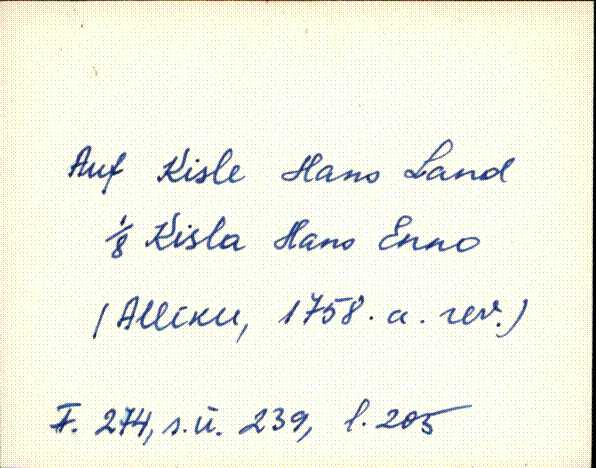 Auf Kisle Hans Land
1/8 Kisla Hans Enno
(Alliku, 1758. a. rev.)
F. 274, s.ü. 239, l. 205